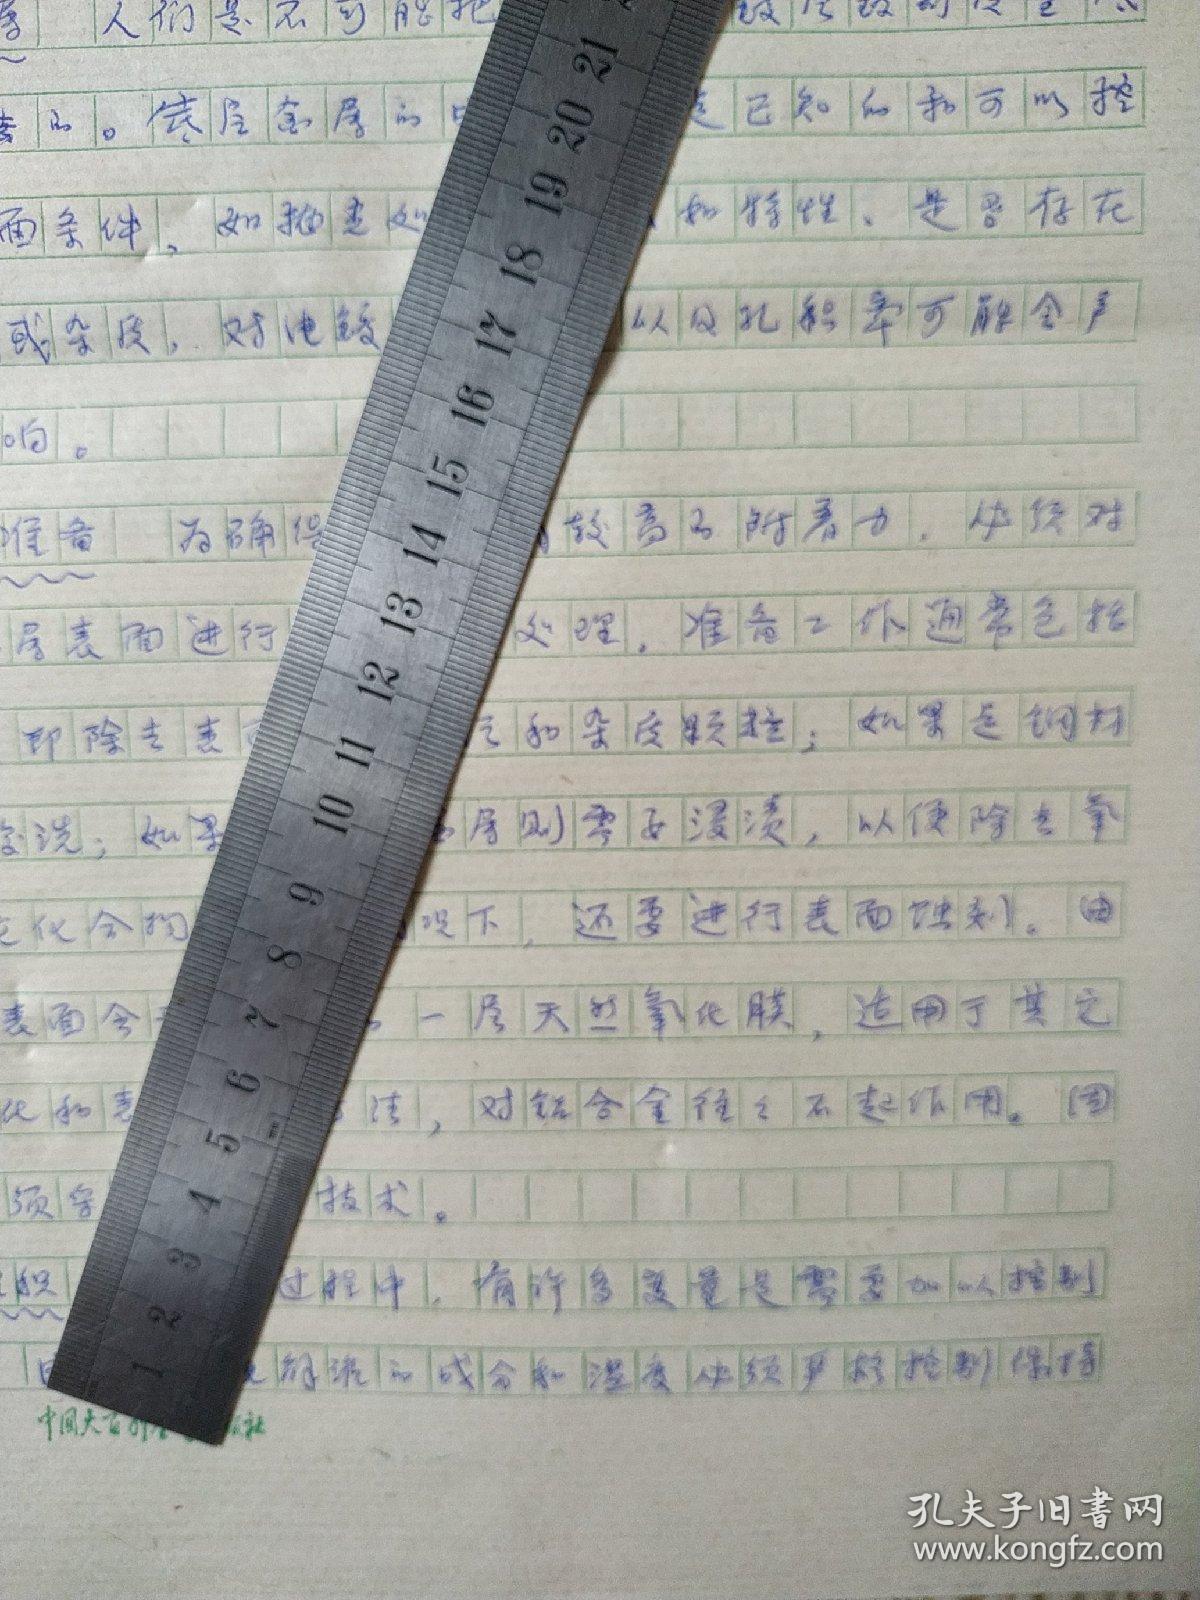 人们是不可能把
的。底层金属的 是已知的和可以控
面条件，如抽查处 和特性、是否存在
或杂质，对电镀 以及孔积率可能会产
响。
准备 为确保 较高的附着力，必须对
层表面进行 处理。准备工作通常包括
即除去表 和杂质颗粒；如果是钢材
洗；如果 属则需要浸渍，以便除去氧
化合物 况下，还要进行表面蚀刻。由
表面会 一层天然氧化膜，适用于其它
化和表 方法，对铝合金往々不起作用。因
须 技术。
积 过程中，有许多变量是需要加以控制
电解液的成分和温度必须严格控制保持
中国大百科全书出版社
21
20
19
18
17
16
15
14
13
12
11
10
9
8
7
6
5
4
3
2
1
孔夫子旧书网
www.kongfz.com